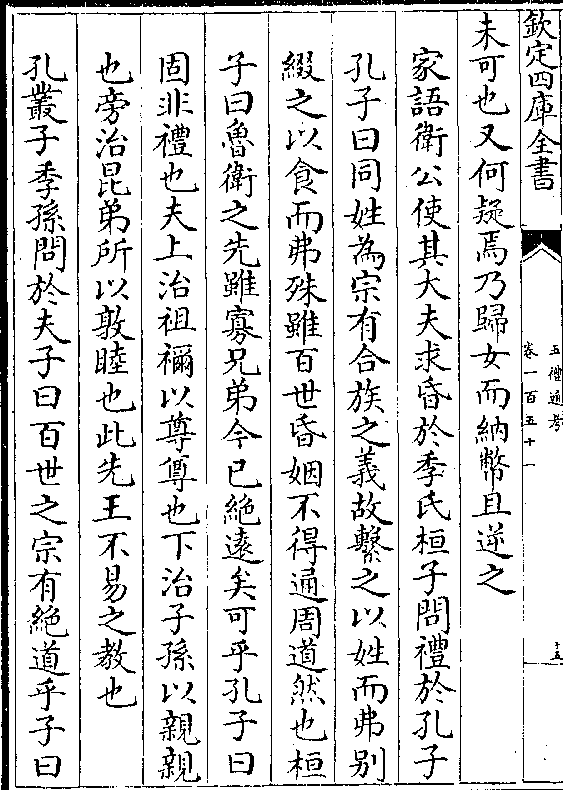 欽定四庫全書
五禮通考
卷一百五十一
十五
未可也又何疑焉乃歸女而納幣且逆之
家語衛公使其大夫求昏於季氏桓子問禮於孔子
孔子曰同姓為宗有合族之義故繫之以姓而弗别
綴之以食而弗殊雖百世昏姻不得通周道然也桓
子曰魯衛之先雖寡兄弟今已絶遠矣可乎孔子曰
固非禮也夫上治祖禰以尊尊也下治子孫以親親
也旁治昆弟所以敦睦也此先王不易之教也
孔叢子季孫問於夫子曰百世之宗有絶道乎子曰